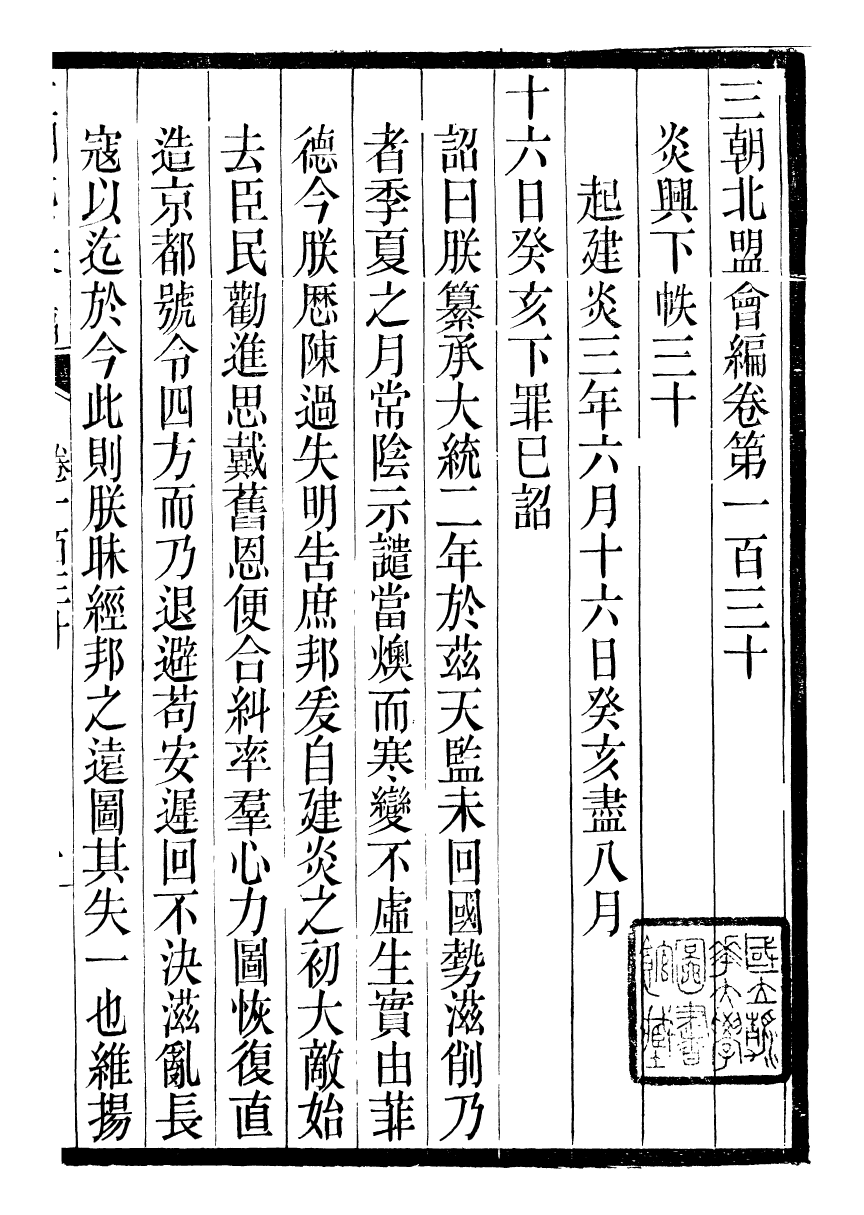 三朝北盟會編卷第一百三十
炎興下帙三十
起建炎三年六月十六日癸亥盡八月
十六日癸亥下罪已詔
詔曰朕纂承大統二年於茲天監未回國勢滋削乃
者季夏之月常陰示譴當燠而寒變不虛生實由菲
德今朕歷陳過失明告庶邦爰自建炎之初大敵始
去臣民勸進思戴舊恩便合糾率羣心力圖恢復直
造京都號令四方而乃退避苟安遲回不決滋亂長
寇以迄於今此則朕昧經邦之遠圖其失一也維揚
卷一百三十
國立清華大學圖書館藏